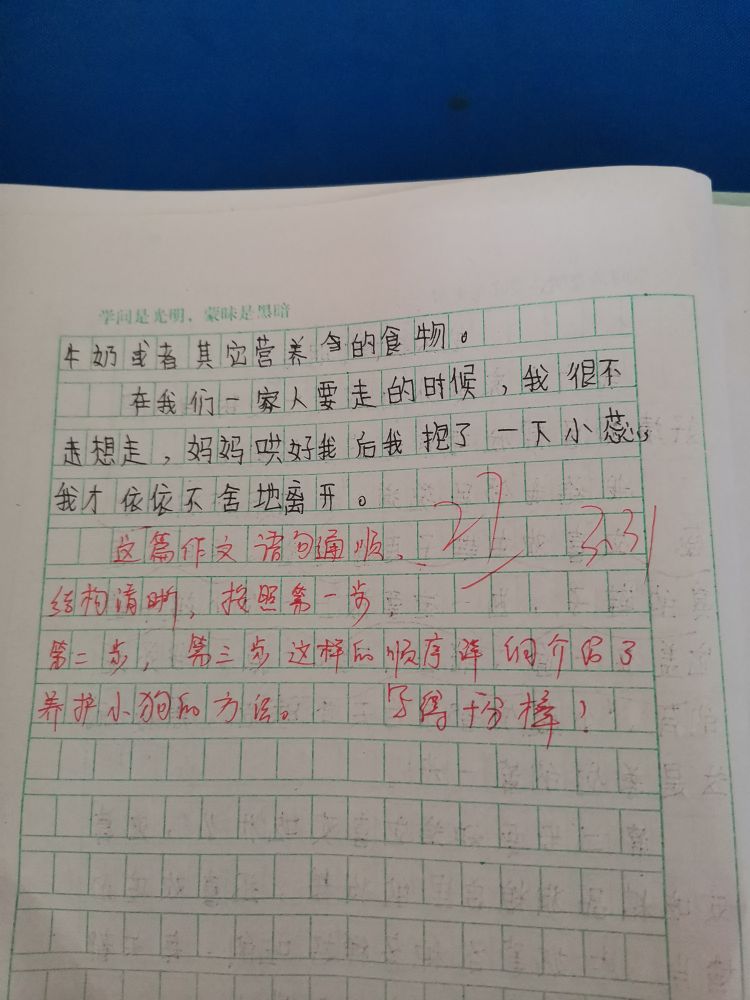 学问是光明，蒙昧是黑暗
牛奶或者其它营养含的食物。
在我们一家人要走的时候，我很不
走想走，妈妈哄好我后我抱了一下小蕊，
我才依依不舍地离开。
27 3.31
这篇作文语句通顺、
结构清晰，按照第一步，
第二步，第三步这样的顺序详细介绍了
养护小狗的方法。 写得十分棒！